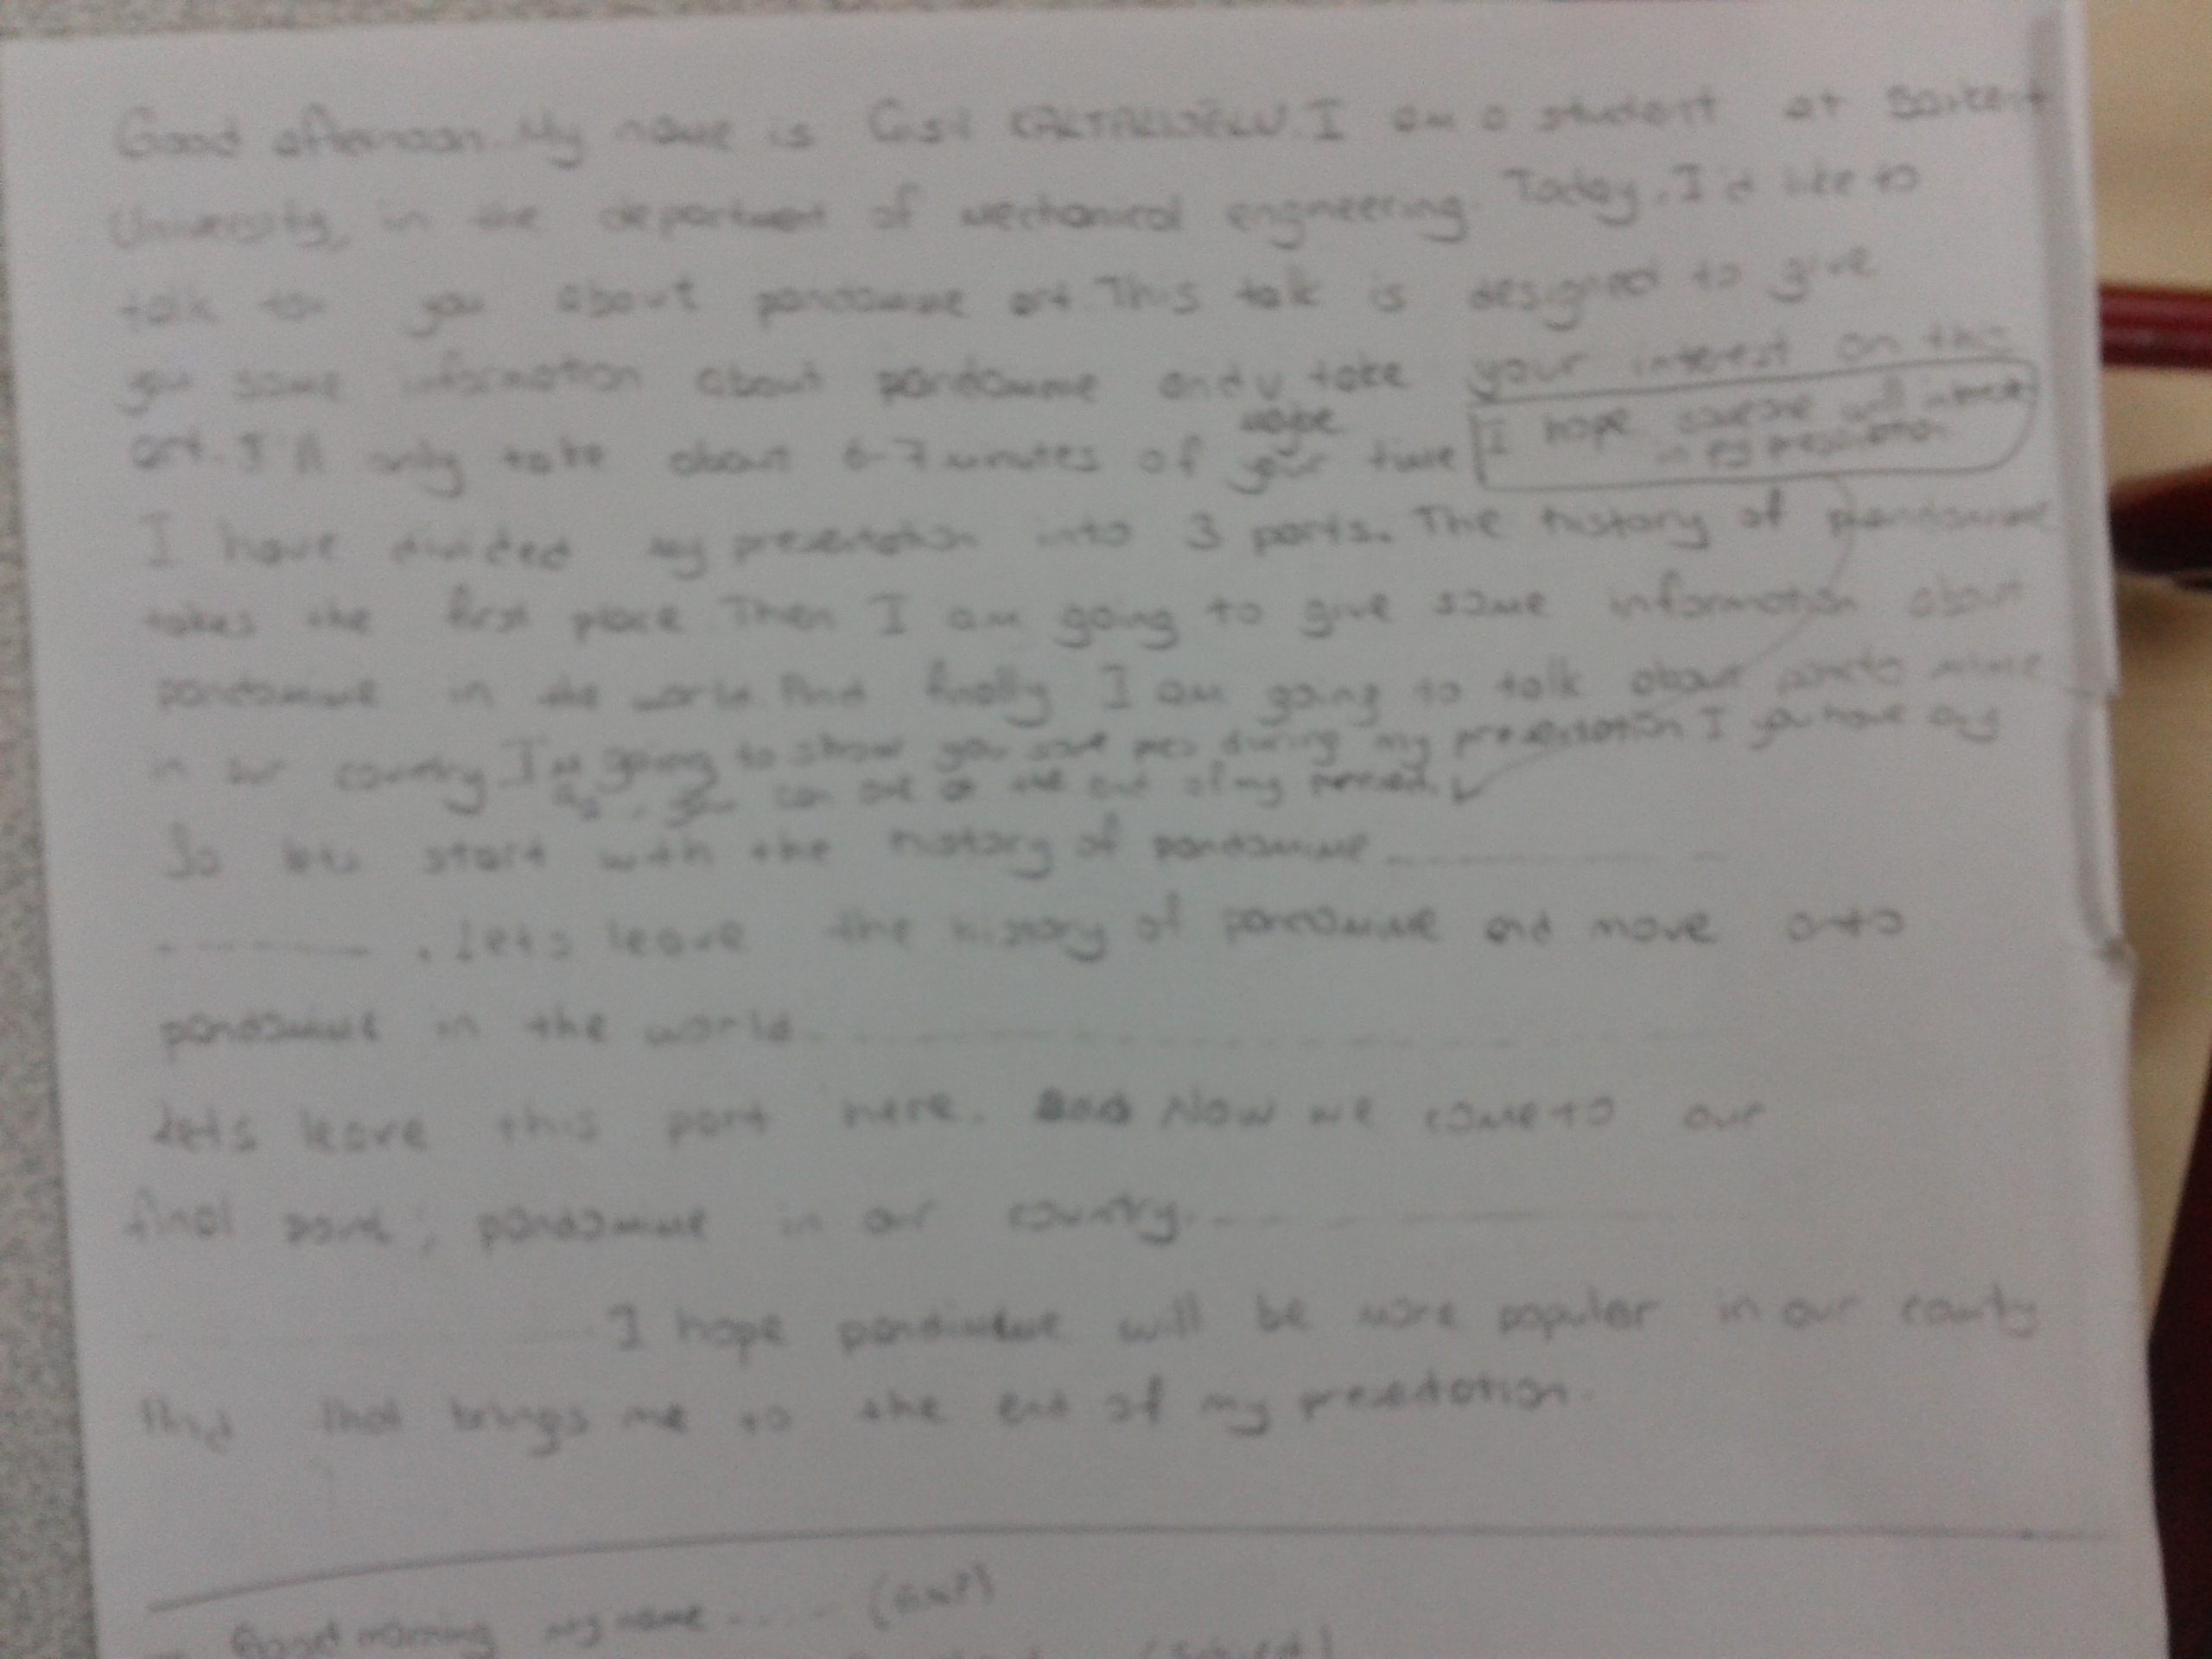 Good afternoon. My name is I am a student at Başkent
University, in the department of mechanical engineering. Today, I'd like to
talk to you about pandomime art. This talk is designed to give
you some information about pandomime and take your interest on this
art. I'll only take about 6-7 minutes of your time
maybe
I hope will interest
in presentation
I have divided my presentation into 3 parts. The history of pandomime
takes the first place. Then I am going to give some information about
pandomime in the world. And finally I am going to talk about pandomime
in our country I'm going to show you some during my presentation I you have any
you can at the end of my
So lets start with the history of pandomime ..........
.......... . Lets leave the history of pandomime and move onto
pandomime in the world ..........
Lets leave this part here. Now we come to our
final point; pandomime in our country ..........
.......... I hope pandomime will be more populer in our county
And that brings me to the end of my presentation.
Good morning my name ....